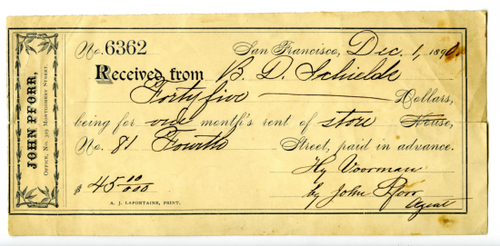 JOHN PFORR,
OFFICE, NO. 329 MONTGOMERY STREET.
No. 6362 San Francisco, Dec. 1, 1890
Received from B. D. Schielde
Forty five Dollars,
being for one month's rent of store House,
No. 81 Fourth Street, paid in advance.
$45 00/000 Hy Voorman
by John Pforr
Agent
A. J. LAFONTAINE, PRINT.